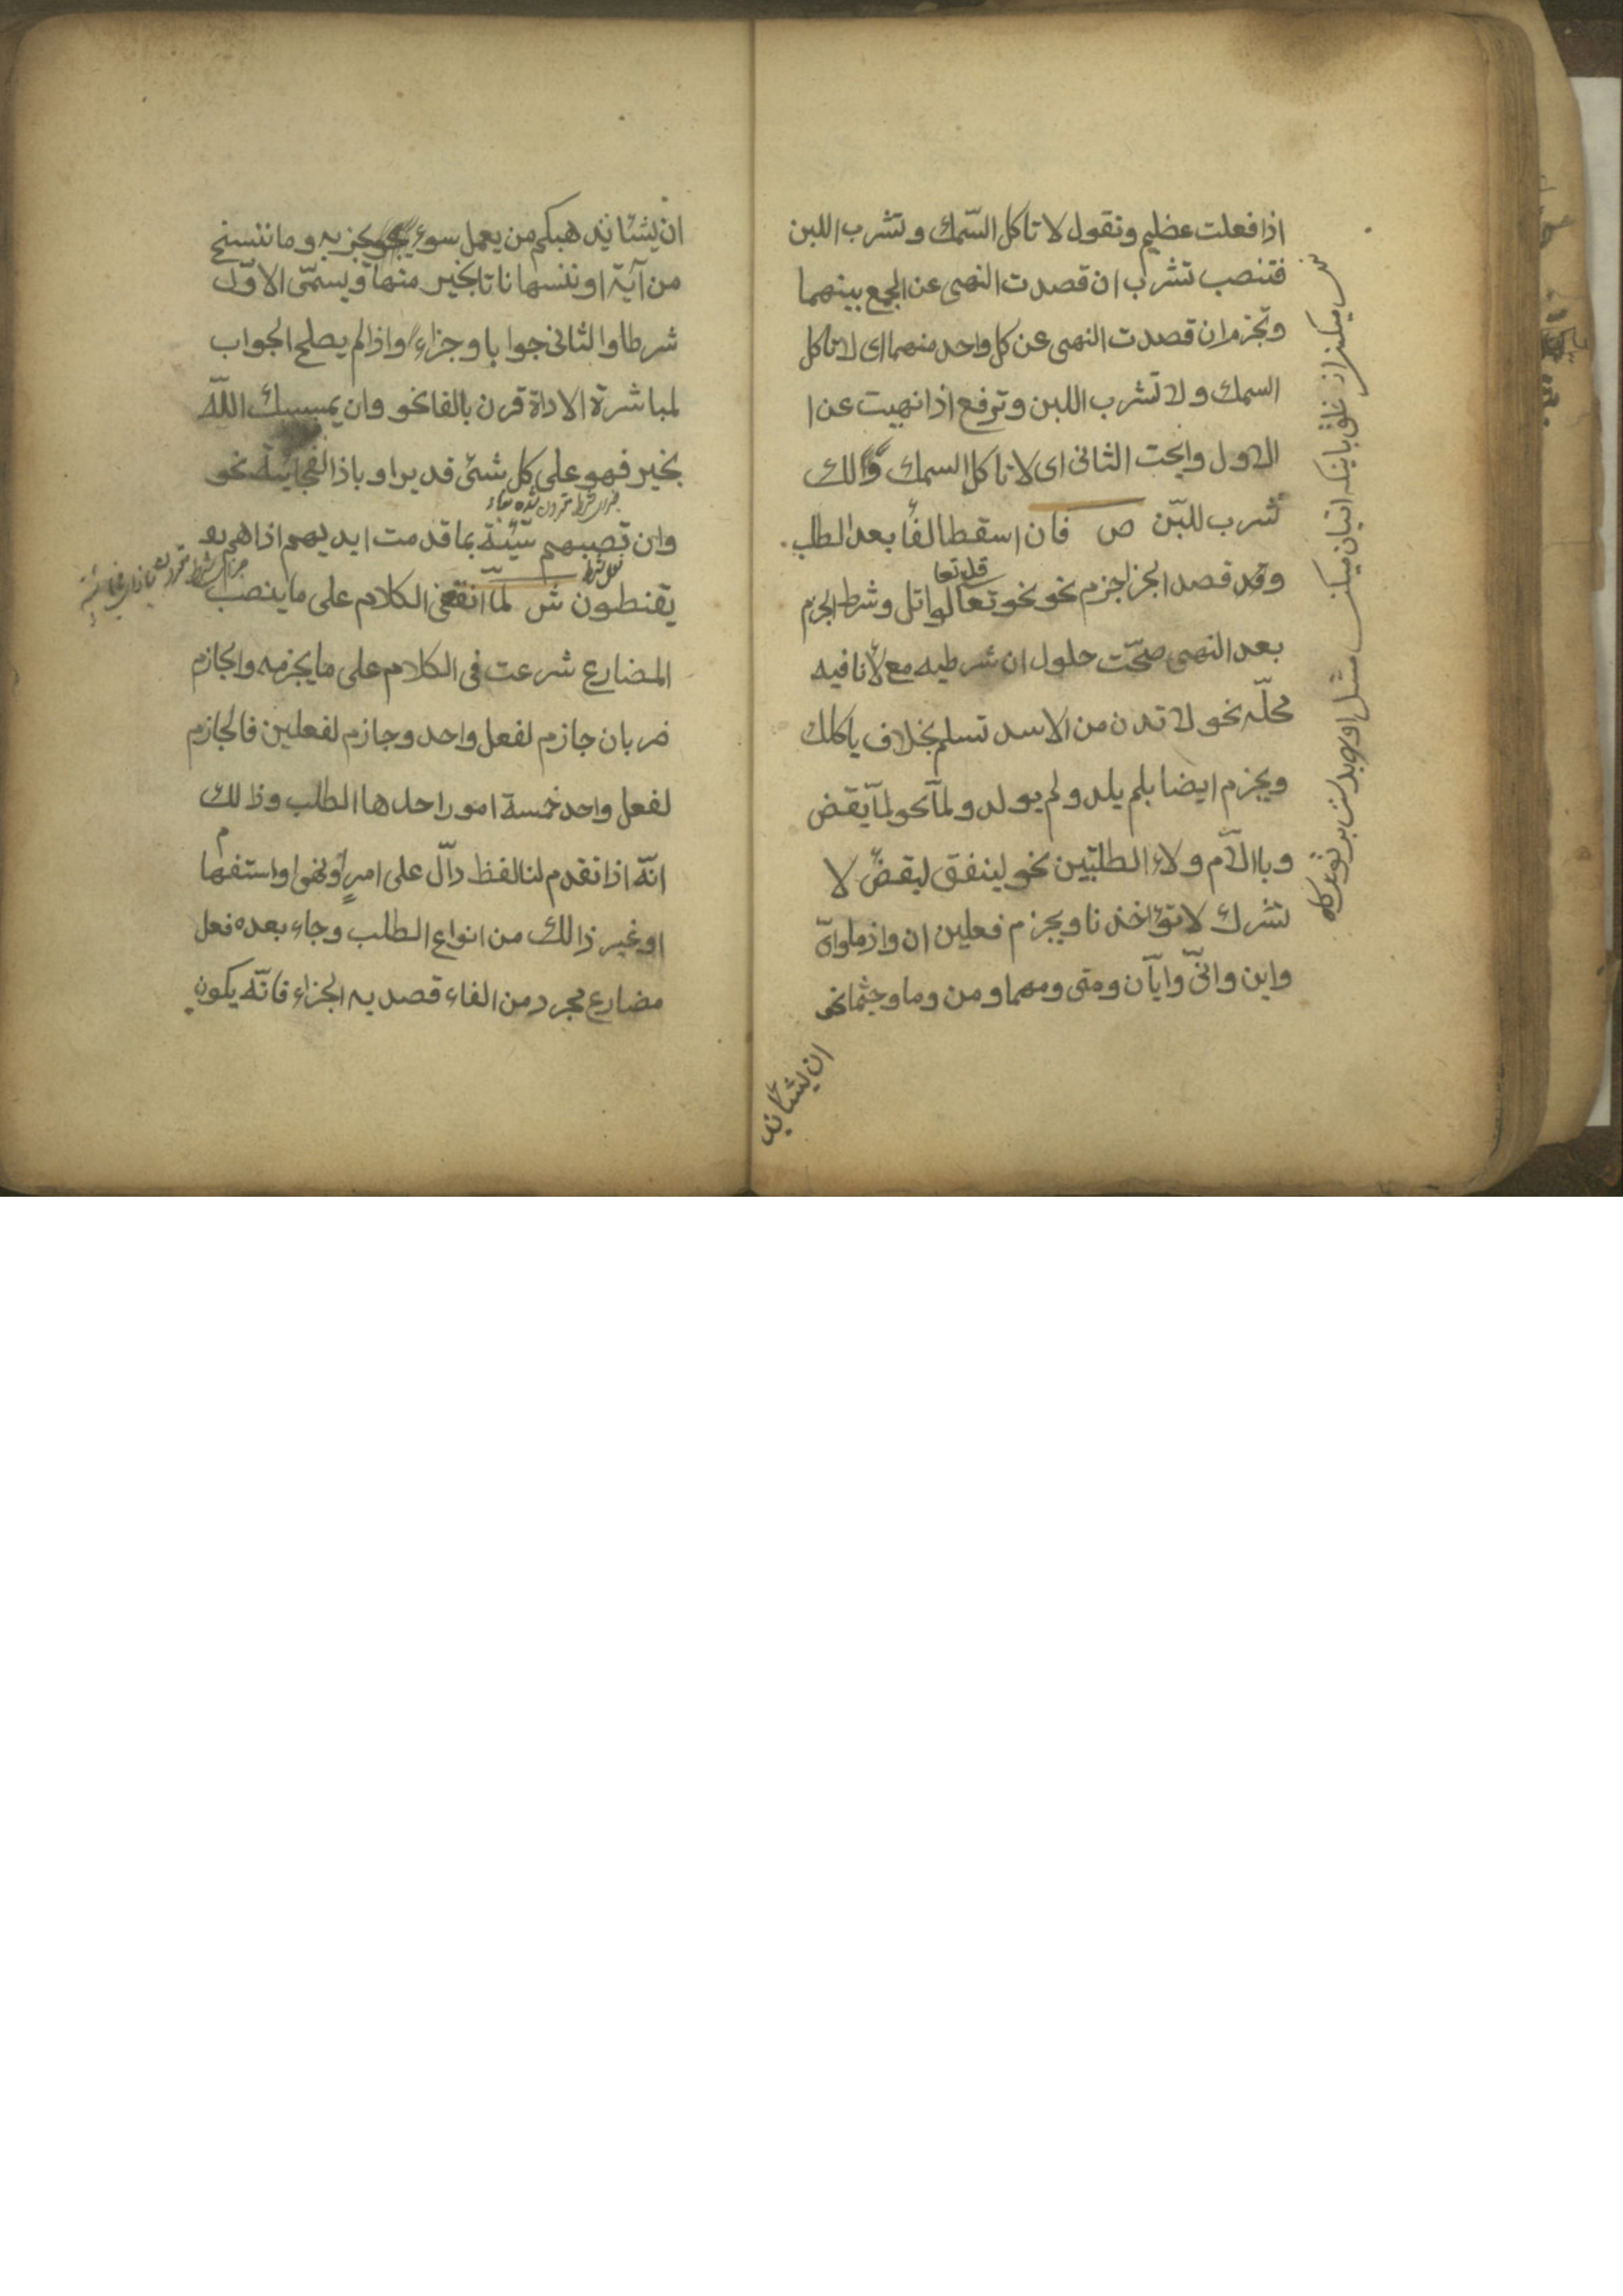 اذا فعلت عظيم وتقول لا تاكل السّمك وتشرب اللبن
فتنصب تشرب ان قصدت النهى عن الجمع بينهما
وتجزم ان قصدت النهى عن كل واحد منهما اى لا تاكل
السمك ولا تشرب اللبن وترفع اذا نهيت عن ا
الاول وابحت الثانى اى لا تاكل السمك ولك
تشرب للبّن ص فان اسقط الفأ بعد الطلب
وقد قصد الجزا جزم نحو نحو تعالوا اتل وشرط الجزم
قل تعا
بعد النهى صحّت حلول ان شرطيه مع لأنافيه
محلّه نحو لا تدن من الاسد تسلم بخلاف ياكلك
ويجزم ايضا بلم يلد ولم يولد ولمآ نحو لمآ يقض
وباالآم ولاء الطلبّين نحو لينفق ليقض لا
تشرك لا تؤاخذنا ويجزم فعلين ان واذما واىّ
واين وانّى وايآن ومتى ومهما ومن وما وحيثما نحو
ان يشأ يذ
ان يشأ يذهبكم من يعمل سوء يجز به وما ننسخ
من آية او ننسها نات بخير منها ويسمّى الاوّل
شرطا والثانى جوابا وجزاء واذا لم يصلح الجواب
لمباشرة الاداة قرن بالفا نحو وان يمسسك اللّه
بخير فهو على كل شئ قدير او باذا الفجايئة نحو
وان تصبهم سيّئة بما قدمت ايديهم اذا هم يقـ
فعل شرط
يقنطون ش لمّا انقضى الكلام على ما ينصب
المضارع شرعت فى الكلام على ما يجزمه والجازم
ضربان جازم لفعل واحد وجازم لفعلين فالجازم
لفعل واحد خمسة امور احدها الطلب وذلك
انّه اذا تقدم لنا لفظ دآلّ على امرٍ او نهى او استفها
م
او غير ذالك من انواع الطلب وجاء بعده فعل
مضارع مجرد من الفاء قصد به الجزاء فانّه يكون